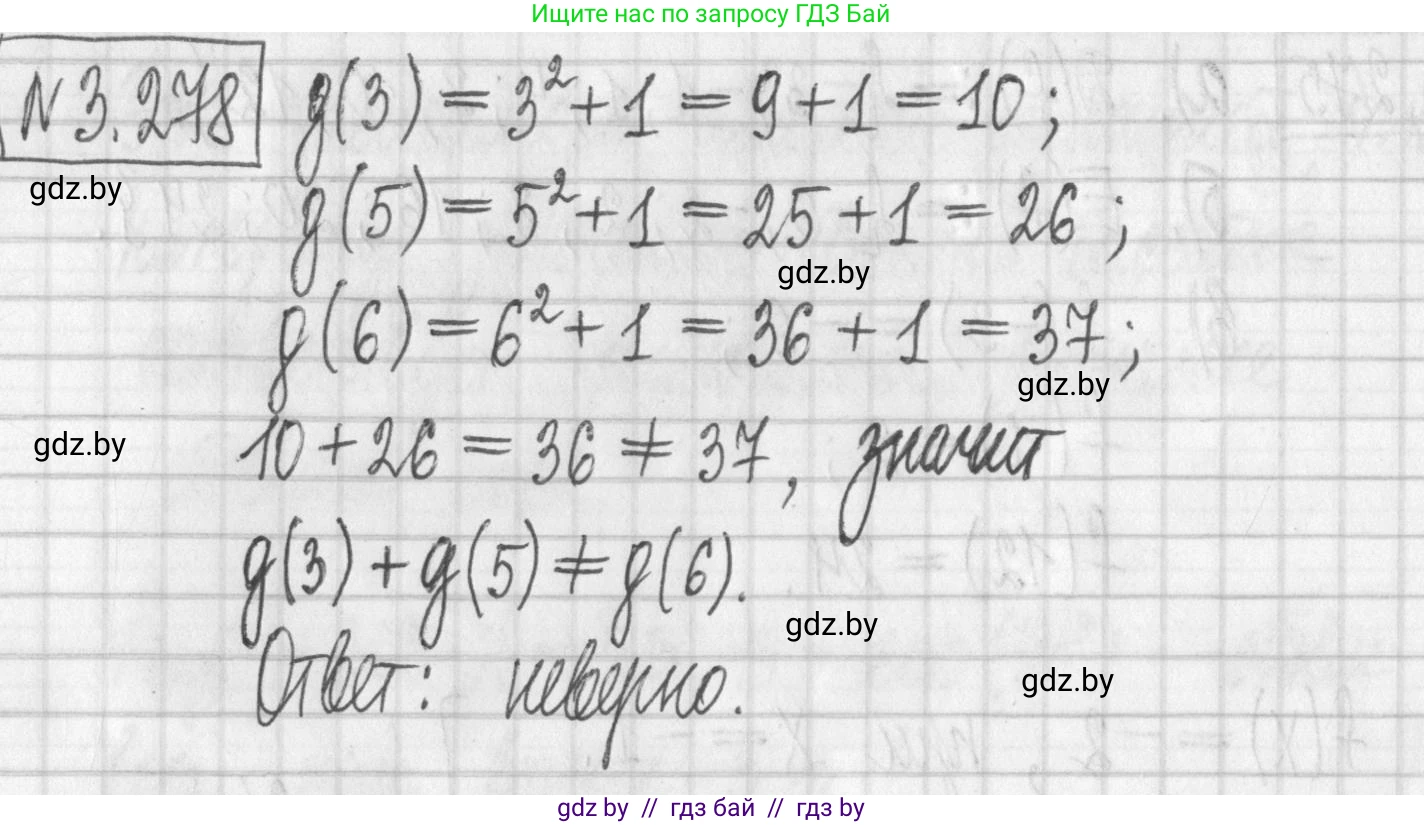 Ищите нас по запросу ГДЗ Бай
N 3.278 g(3) = 3² + 1 = 9 + 1 = 10 ;
gdz.by
g(5) = 5² + 1 = 25 + 1 = 26 ;
gdz.by
g(6) = 6² + 1 = 36 + 1 = 37 ;
gdz.by
10 + 26 = 36 ≠ 37, значит
gdz.by
g(3) + g(5) ≠ g(6).
gdz.by
Ответ: неверно.
gdz.by
gdz.by // гдз бай // гдз by